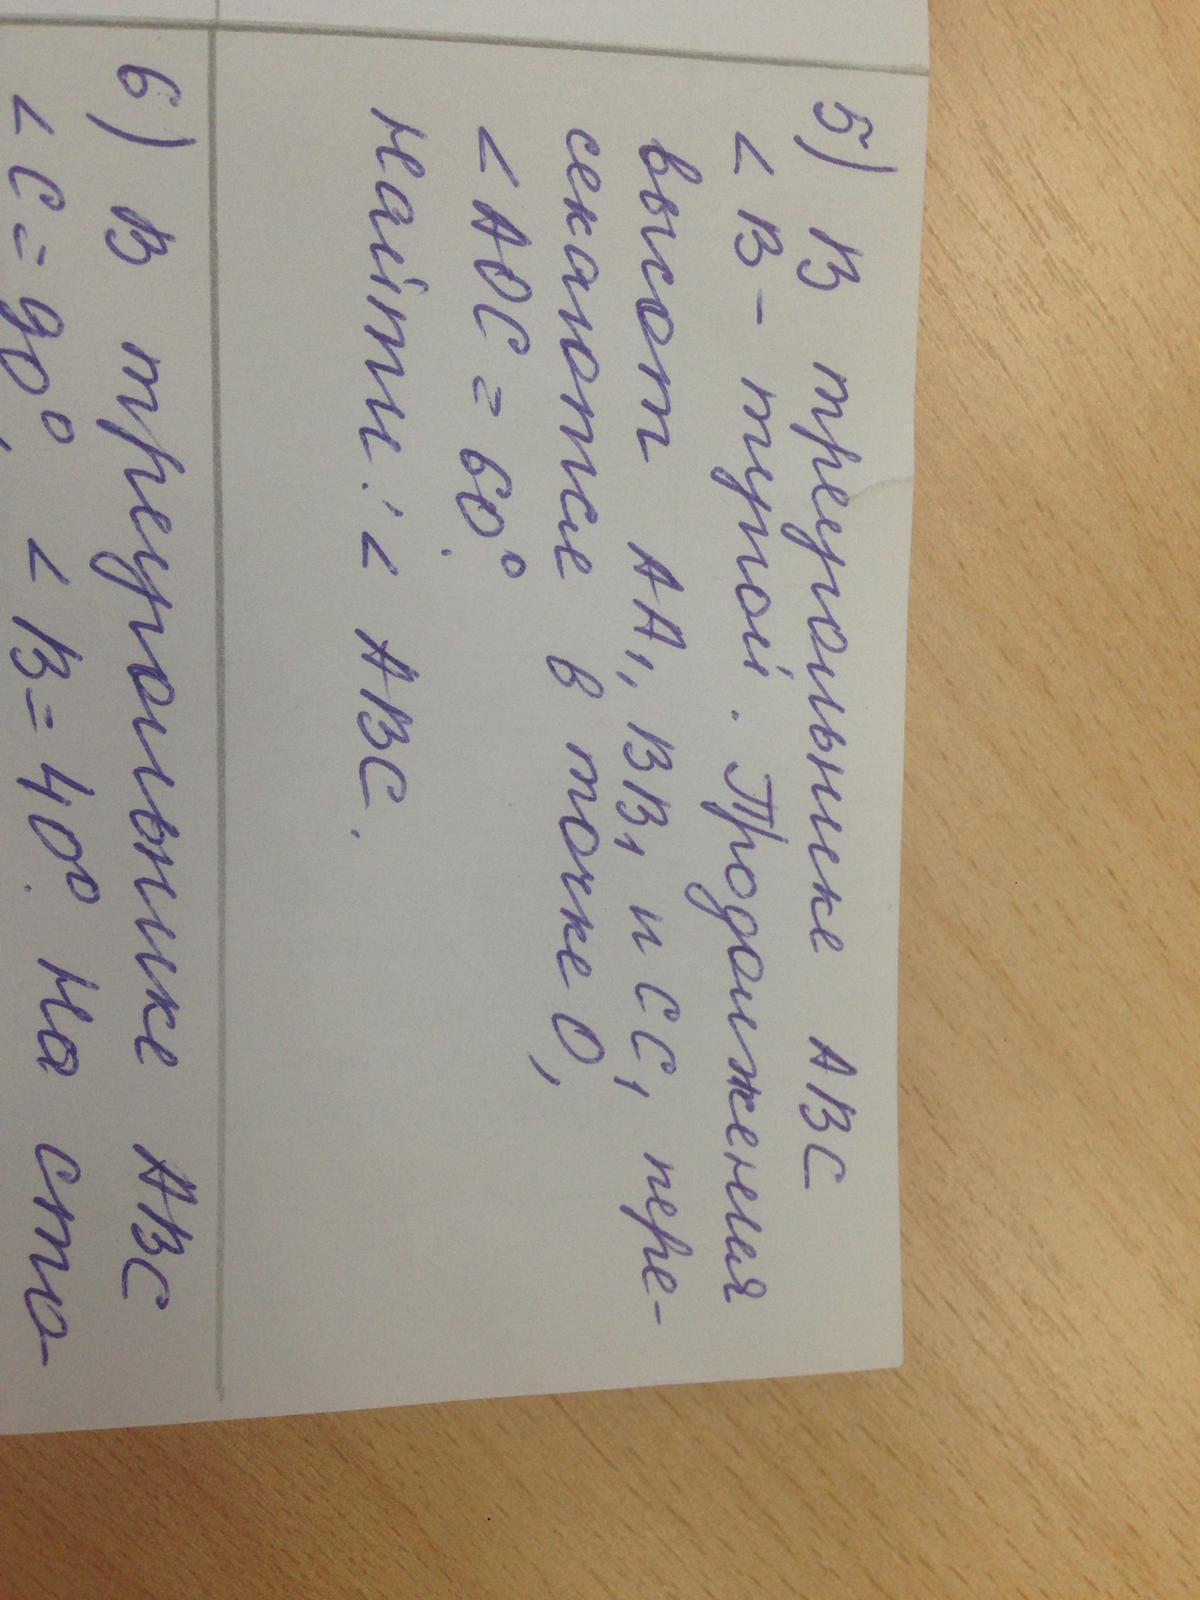 5) В треугольнике АВС
< В - тупой. Продолжения
высот АА₁, ВВ₁ и СС₁ пере-
секаются в точке О,
< АОС = 60°.
Найти: < АВС.
6) В треугольнике АВС
< С = 90°, < В = 40°. На сто-